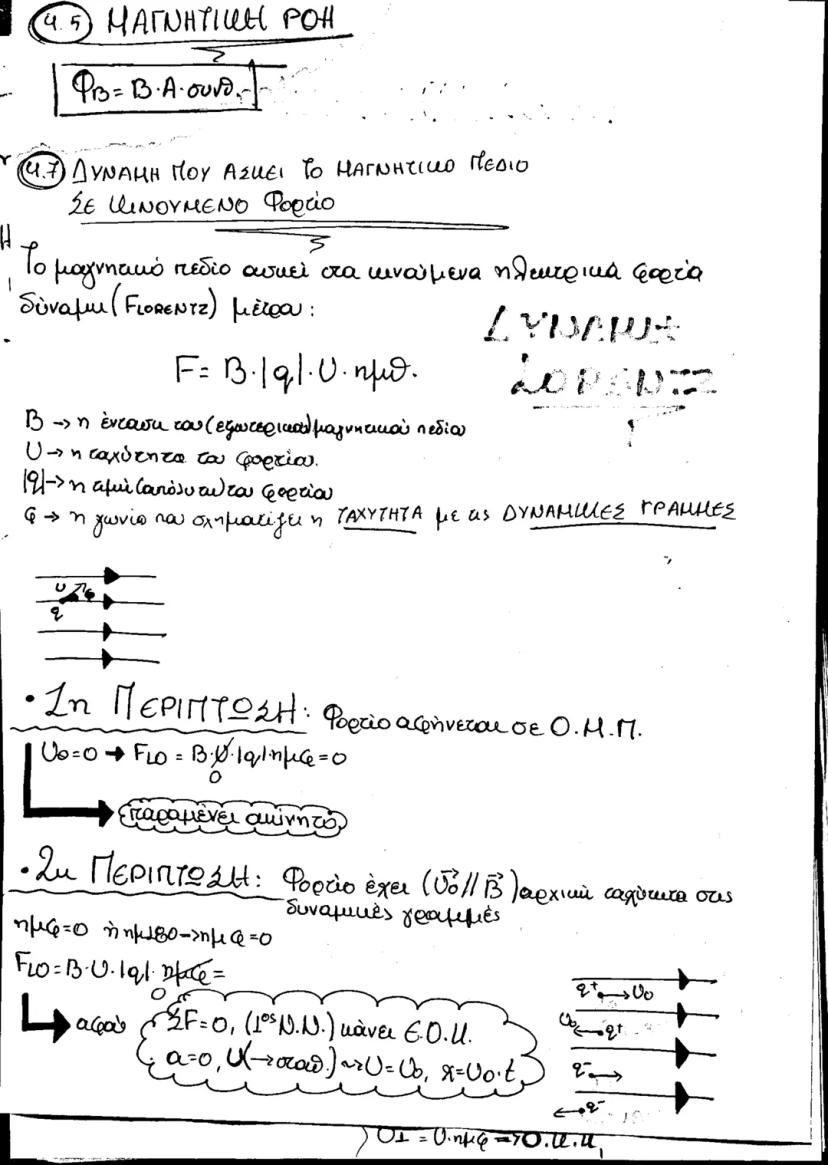 4.5 ΜΑΓΝΗΤΙΚΗ ΡΟΗ
Φ_B = B·A·συνθ.
4.7 ΔΥΝΑΜΗ ΠΟΥ ΑΣΚΕΙ ΤΟ ΜΑΓΝΗΤΙΚΟ ΠΕΔΙΟ
ΣΕ ΚΙΝΟΥΜΕΝΟ Φορτίο
Το μαγνητικό πεδίο ασκεί στα κινούμενα ηλεκτρικά φορτία
δύναμη (FLORENTZ) μέτρου:
ΔΥΝΑΜΗ
LORENTZ
F = B·|q|·υ·ημθ.
B → η ένταση του (εξωτερικού) μαγνητικού πεδίου
υ → η ταχύτητα του φορτίου.
|q| → η τιμή (απόλυτη) του φορτίου
φ → η γωνία που σχηματίζει η ΤΑΧΥΤΗΤΑ με τις ΔΥΝΑΜΙΚΕΣ ΓΡΑΜΜΕΣ
υ φ
q
• 1η ΠΕΡΙΠΤΩΣΗ: Φορτίο αφήνεται σε Ο.Μ.Π.
υ₀=0 → F_LO = B·υ·|q|·ημφ=0
0
παραμένει ακίνητο
• 2η ΠΕΡΙΠΤΩΣΗ: Φορτίο έχει (υ₀⃗ // B⃗) αρχική ταχύτητα στις
δυναμικές γραμμές
ημφ=0 ή ημ180→ημφ=0
F_LO = B·υ·|q|·ημφ=
0
αφού ΣF=0, (1ος Ν.Ν.) κάνει Ε.Ο.Κ.
α=0, υ(→σταθ.) ⇝ υ=υ₀, x=υ₀·t
q⁺ → υ₀
υ₀ ← q⁺
q⁻ →
← q⁻
υ⊥ = υ·ημφ → Ο.Κ.Κ,